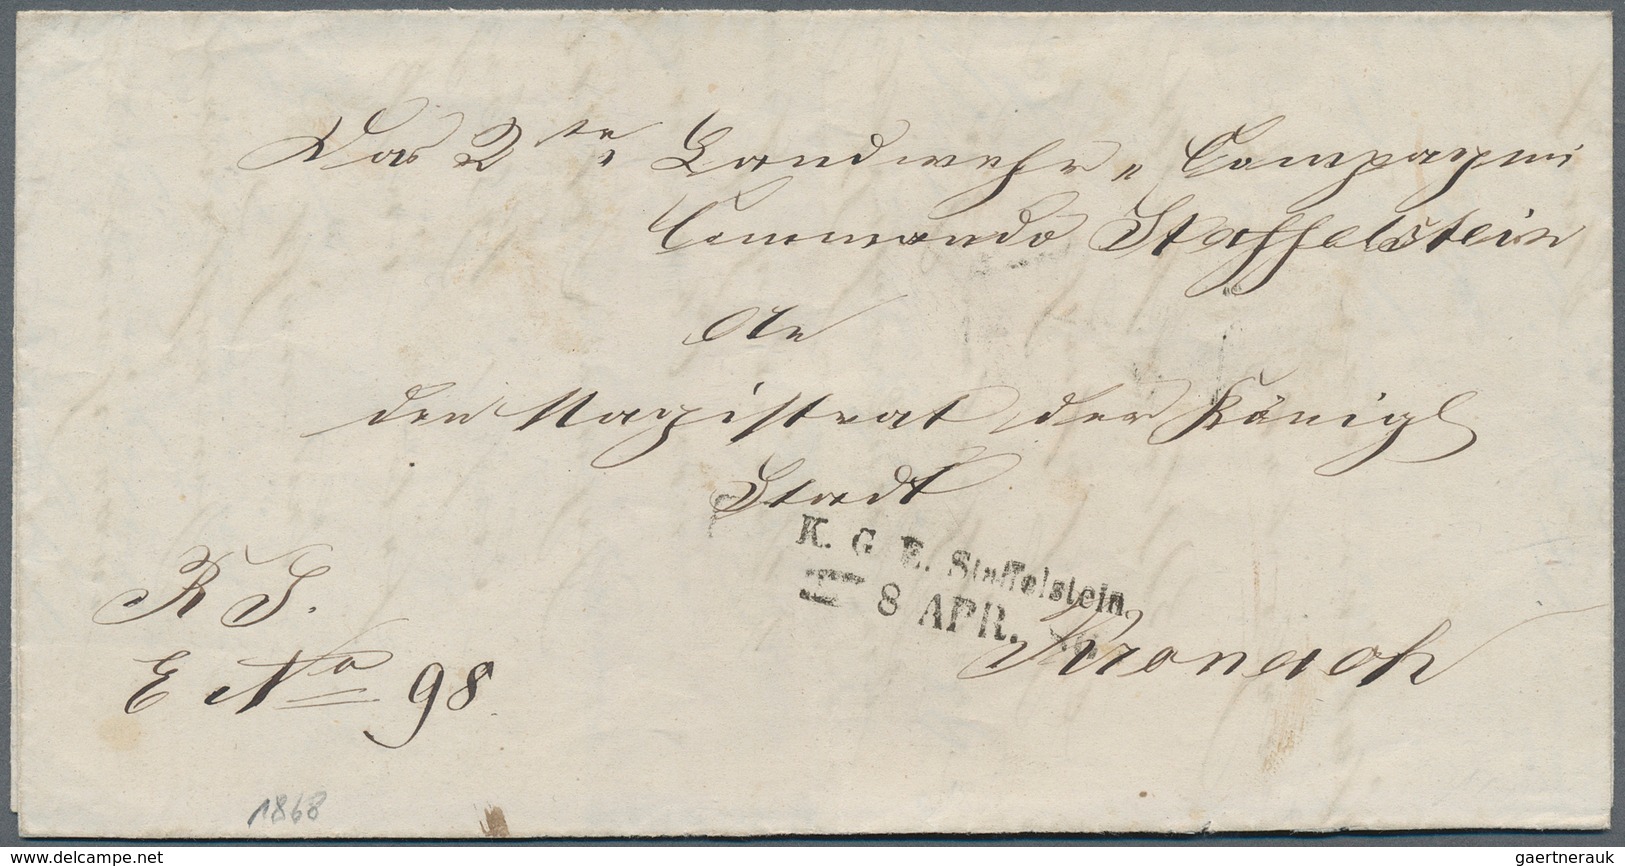 Das 2te Landwehr=Compagnie
Commando Staffelstein
An
den Magistrat der Königl
Stadt
K. G. E. Staffelstein.
8 APR.
Kronach
R S.
E No 98
1868
www.delcampe.com
gaertnerauk